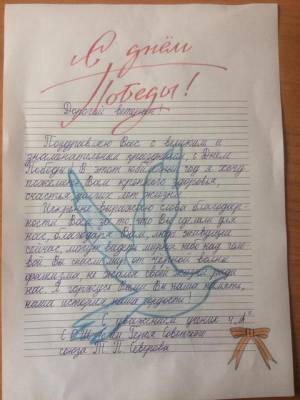 С днём
Победы!
Дорогой ветеран!
Поздравляю Вас с великим и
знаменательным праздником, с Днем
Победы! В этот юбилейный год я хочу
пожелать Вам крепкого здоровья,
счастья долгих лет жизни.
Искренне выражаю слова благодар-
ности Вам за то, что Вы сделали для
нас, благодаря Вам, люди живущие
сейчас, могут видеть мирное небо над голо
вой Вы спасли мир от черной волны
фашизма, не жалея своей жизни ради
нас. Я горжусь Вами! Вы наша память,
наша история наша гордость!
С уважением ученик 4 "А"
Героя Советского
союза